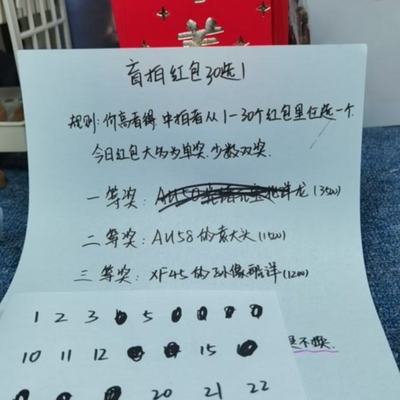 盲拍红包30选1
规则:价高者得 中拍者从1-30个红包里任选一个.
今日红包大多为单奖.少数双奖.
一等奖: 龙(3500)
二等奖: AU58的袁大头(1500)
三等奖: XF45的孙像 (1200)
1 2 3 5
10 11 12 15
20 21 22